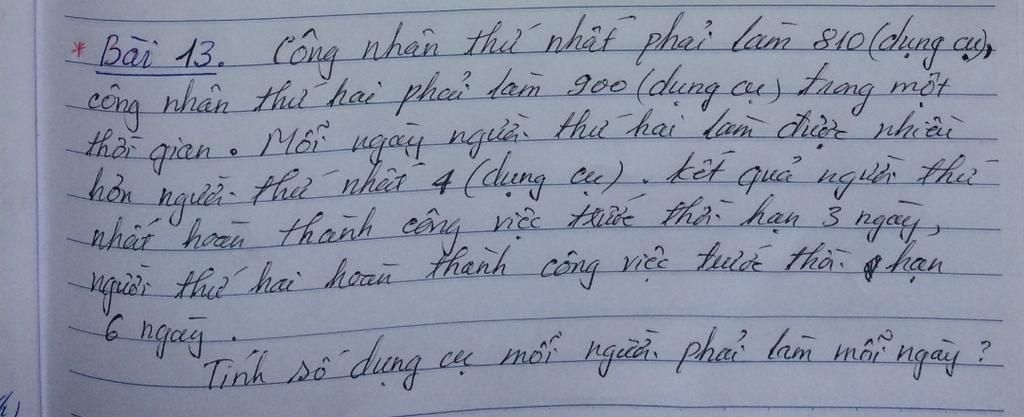 * Bài 13. Công nhân thứ nhất phải làm 810 (dụng cụ),
công nhân thứ hai phải làm 900 (dụng cụ) trong một
thời gian. Mỗi ngày người thứ hai làm được nhiều
hơn người thứ nhất 4 (dụng cụ). Kết quả người thứ
nhất hoàn thành công việc trước thời hạn 3 ngày,
người thứ hai hoàn thành công việc trước thời hạn
6 ngày.
Tính số dụng cụ mỗi người phải làm mỗi ngày?